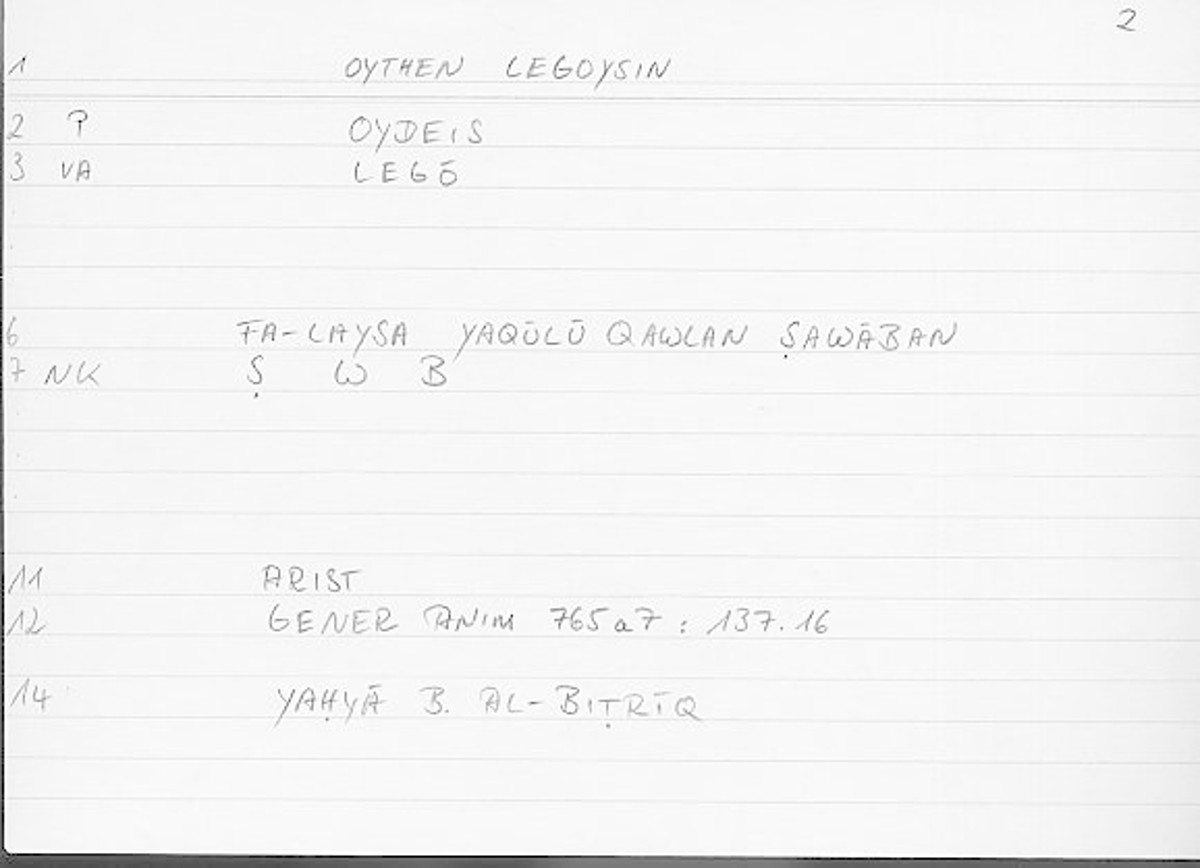 2
1 OYTHEN LEGOYSIN
2 P OYDEIS
3 VA LEGŌ
6 FA-LAYSA YAQŪLŪ QAWLAN ṢAWĀBAN
7 NK Ṣ W B
11 ARIST
12 GENER ANIM 765a7 : 137.16
14 YAḤYĀ B. AL-BIṬRĪQ